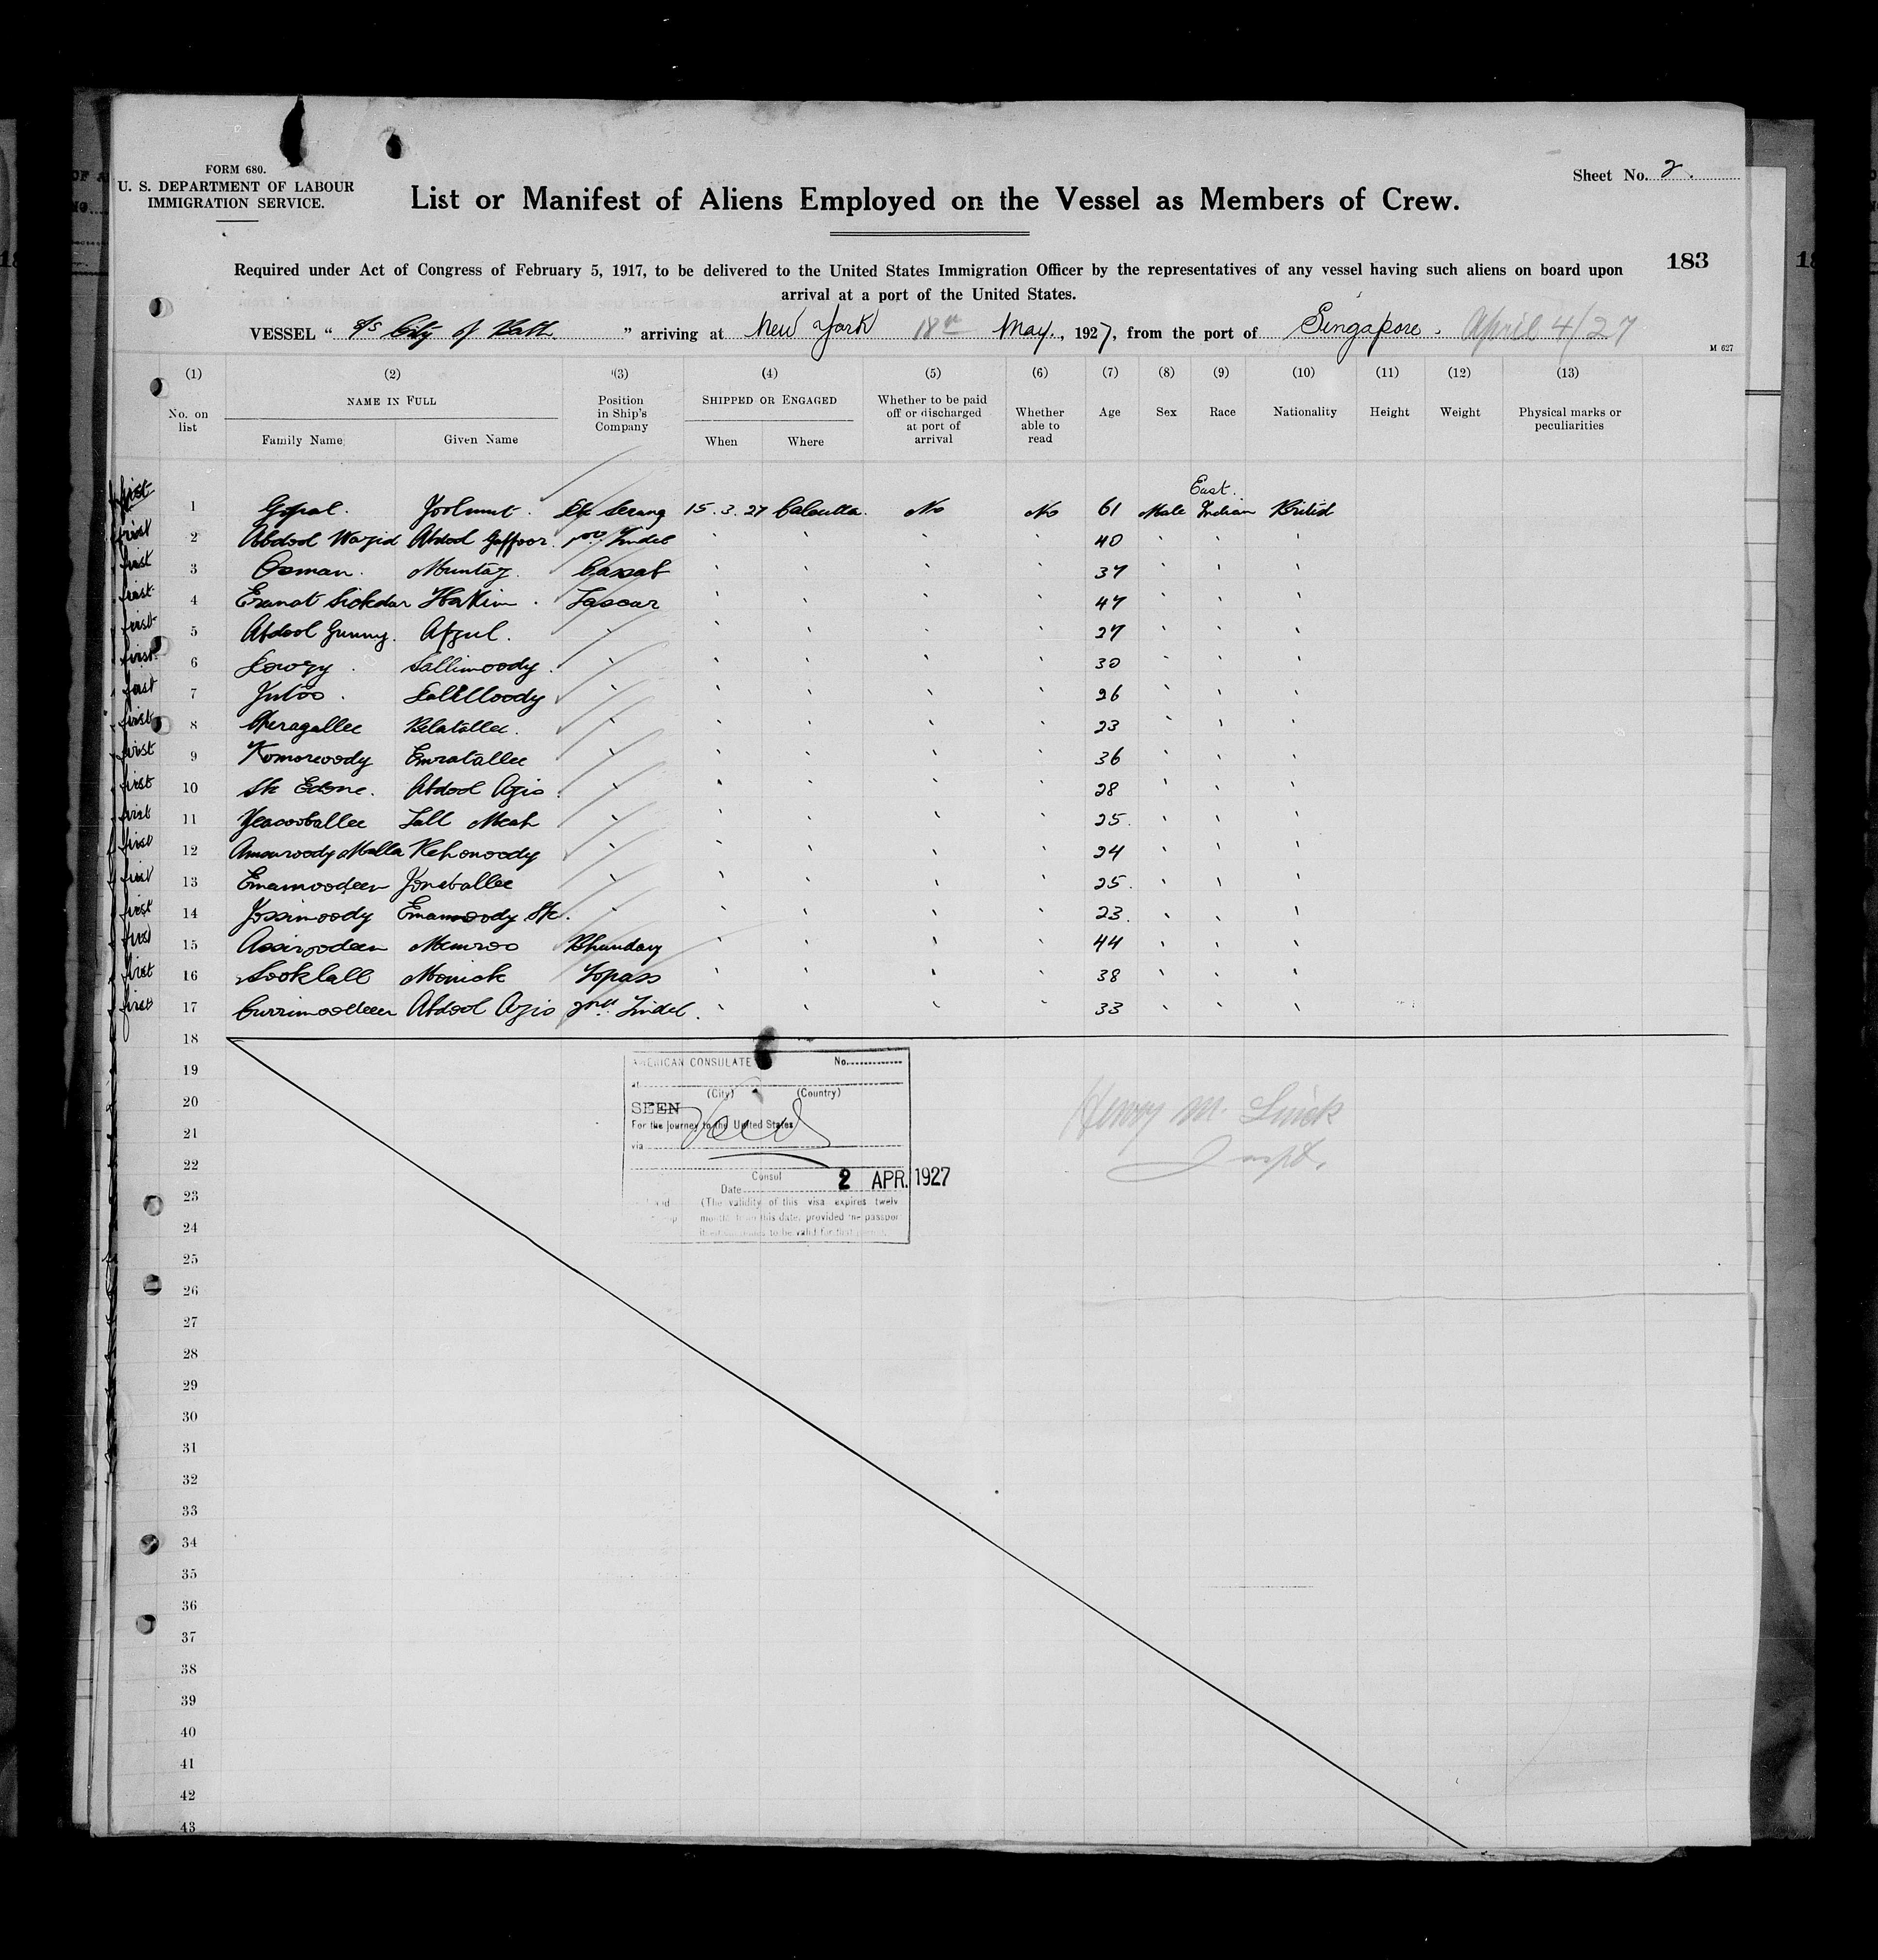 FORM 680.
U. S. DEPARTMENT OF LABOUR
IMMIGRATION SERVICE.
Sheet No. 2.
List or Manifest of Aliens Employed on the Vessel as Members of Crew.
183
Required under Act of Congress of February 5, 1917, to be delivered to the United States Immigration Officer by the representatives of any vessel having such aliens on board upon
arrival at a port of the United States.
VESSEL “ s/s City of Bath ” arriving at New York 18th May, 1927, from the port of Singapore. April 4/27
M 627
(1) (2) (3) (4) (5) (6) (7) (8) (9) (10) (11) (12) (13)
No. on list NAME IN FULL Family Name Given Name Position in Ship's Company SHIPPED OR ENGAGED When Where Whether to be paid off or discharged at port of arrival Whether able to read Age Sex Race Nationality Height Weight Physical marks or peculiarities
first 1 Gopal. Serang 15.3.27 Calcutta. No No 61 Male East Indian British
first 2 Abdool Wazid Abdool Gaffoor Tindel 40
first 3 Osman. Muntaz. Cassab 37
first 4 Sickdar Hakim. Lascar 47
first 5 Abdool Gunny. Afzul. 27
first 6 Sallimoody. 30
first 7 26
first 8 Cheragallee 23
first 9 Komorwoody Emratallee 36
first 10 Sk Abdool Azis 28
first 11 Yeacooballee Lall Meah 25.
first 12 Molla 24
first 13 Emamoodeen Jonaballee 25.
first 14 Jossimoody Emamoody Sk. 23.
first 15 Bhundary 44
first 16 Sooklall Monick Topass 38
first 17 Currimoodeen Abdool Azis 2nd Tindel. 33
18
19
20
21
22
23
24
25
26
27
28
29
30
31
32
33
34
35
36
37
38
39
40
41
42
43
AMERICAN CONSULATE No.
at
(City) (Country)
SEEN
For the journey to the United States
via
Consul
Date 2 APR. 1927
(The validity of this visa expires twelv
months from this date, provided the passpor
Henry M.
Inspt.